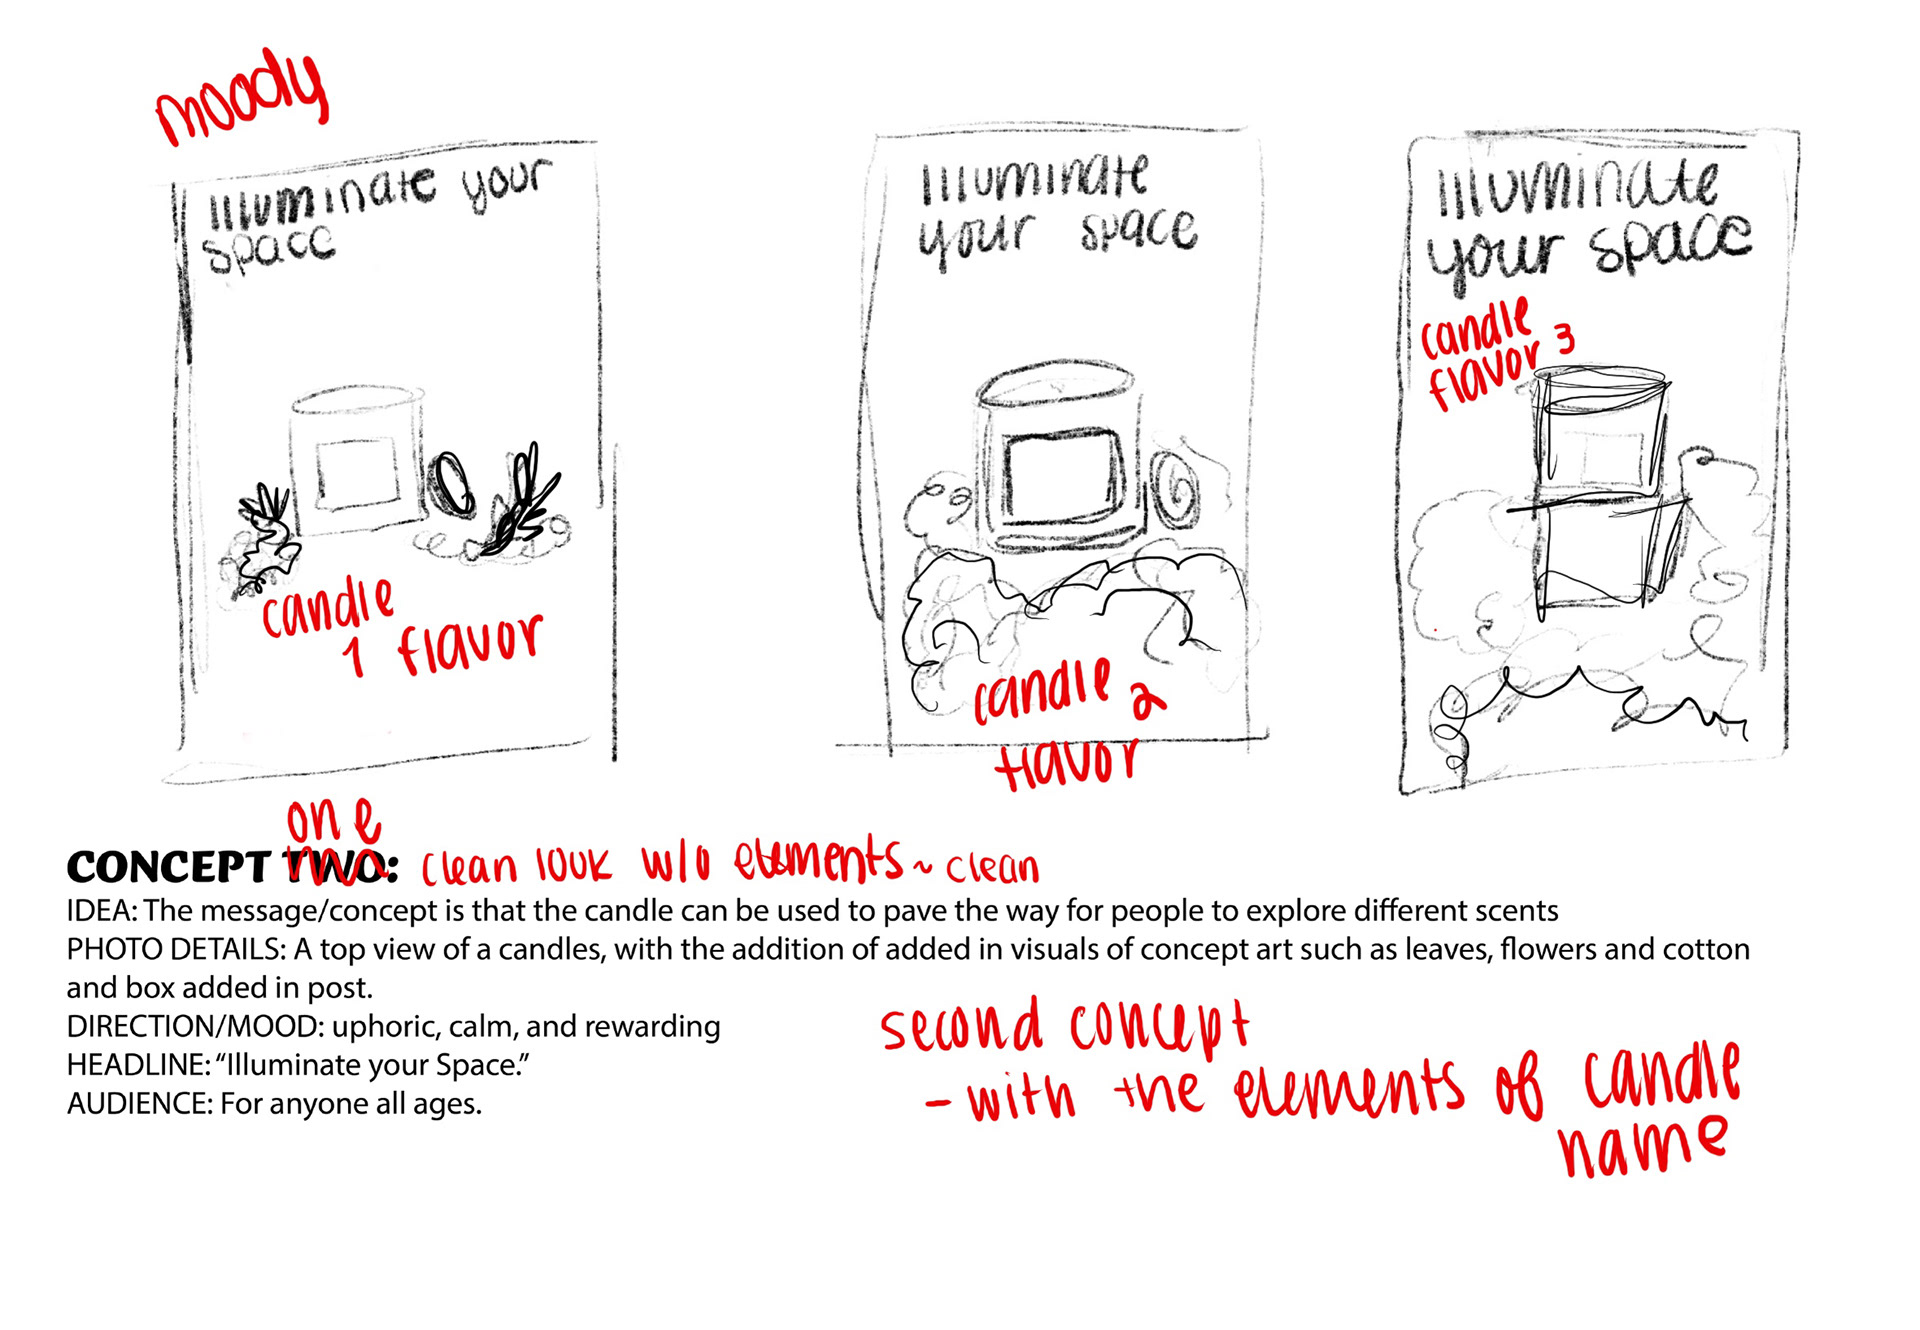 moody
Illuminate your
space
candle
1 flavor
Illuminate
your space
candle 2
flavor
Illuminate
your space
candle
flavor 3
one
CONCEPT TWO: clean look w/o elements ~ clean
IDEA: The message/concept is that the candle can be used to pave the way for people to explore different scents
PHOTO DETAILS: A top view of a candles, with the addition of added in visuals of concept art such as leaves, flowers and cotton
and box added in post.
DIRECTION/MOOD: uphoric, calm, and rewarding
HEADLINE: “Illuminate your Space.”
AUDIENCE: For anyone all ages.
second concept
- with the elements of candle
name